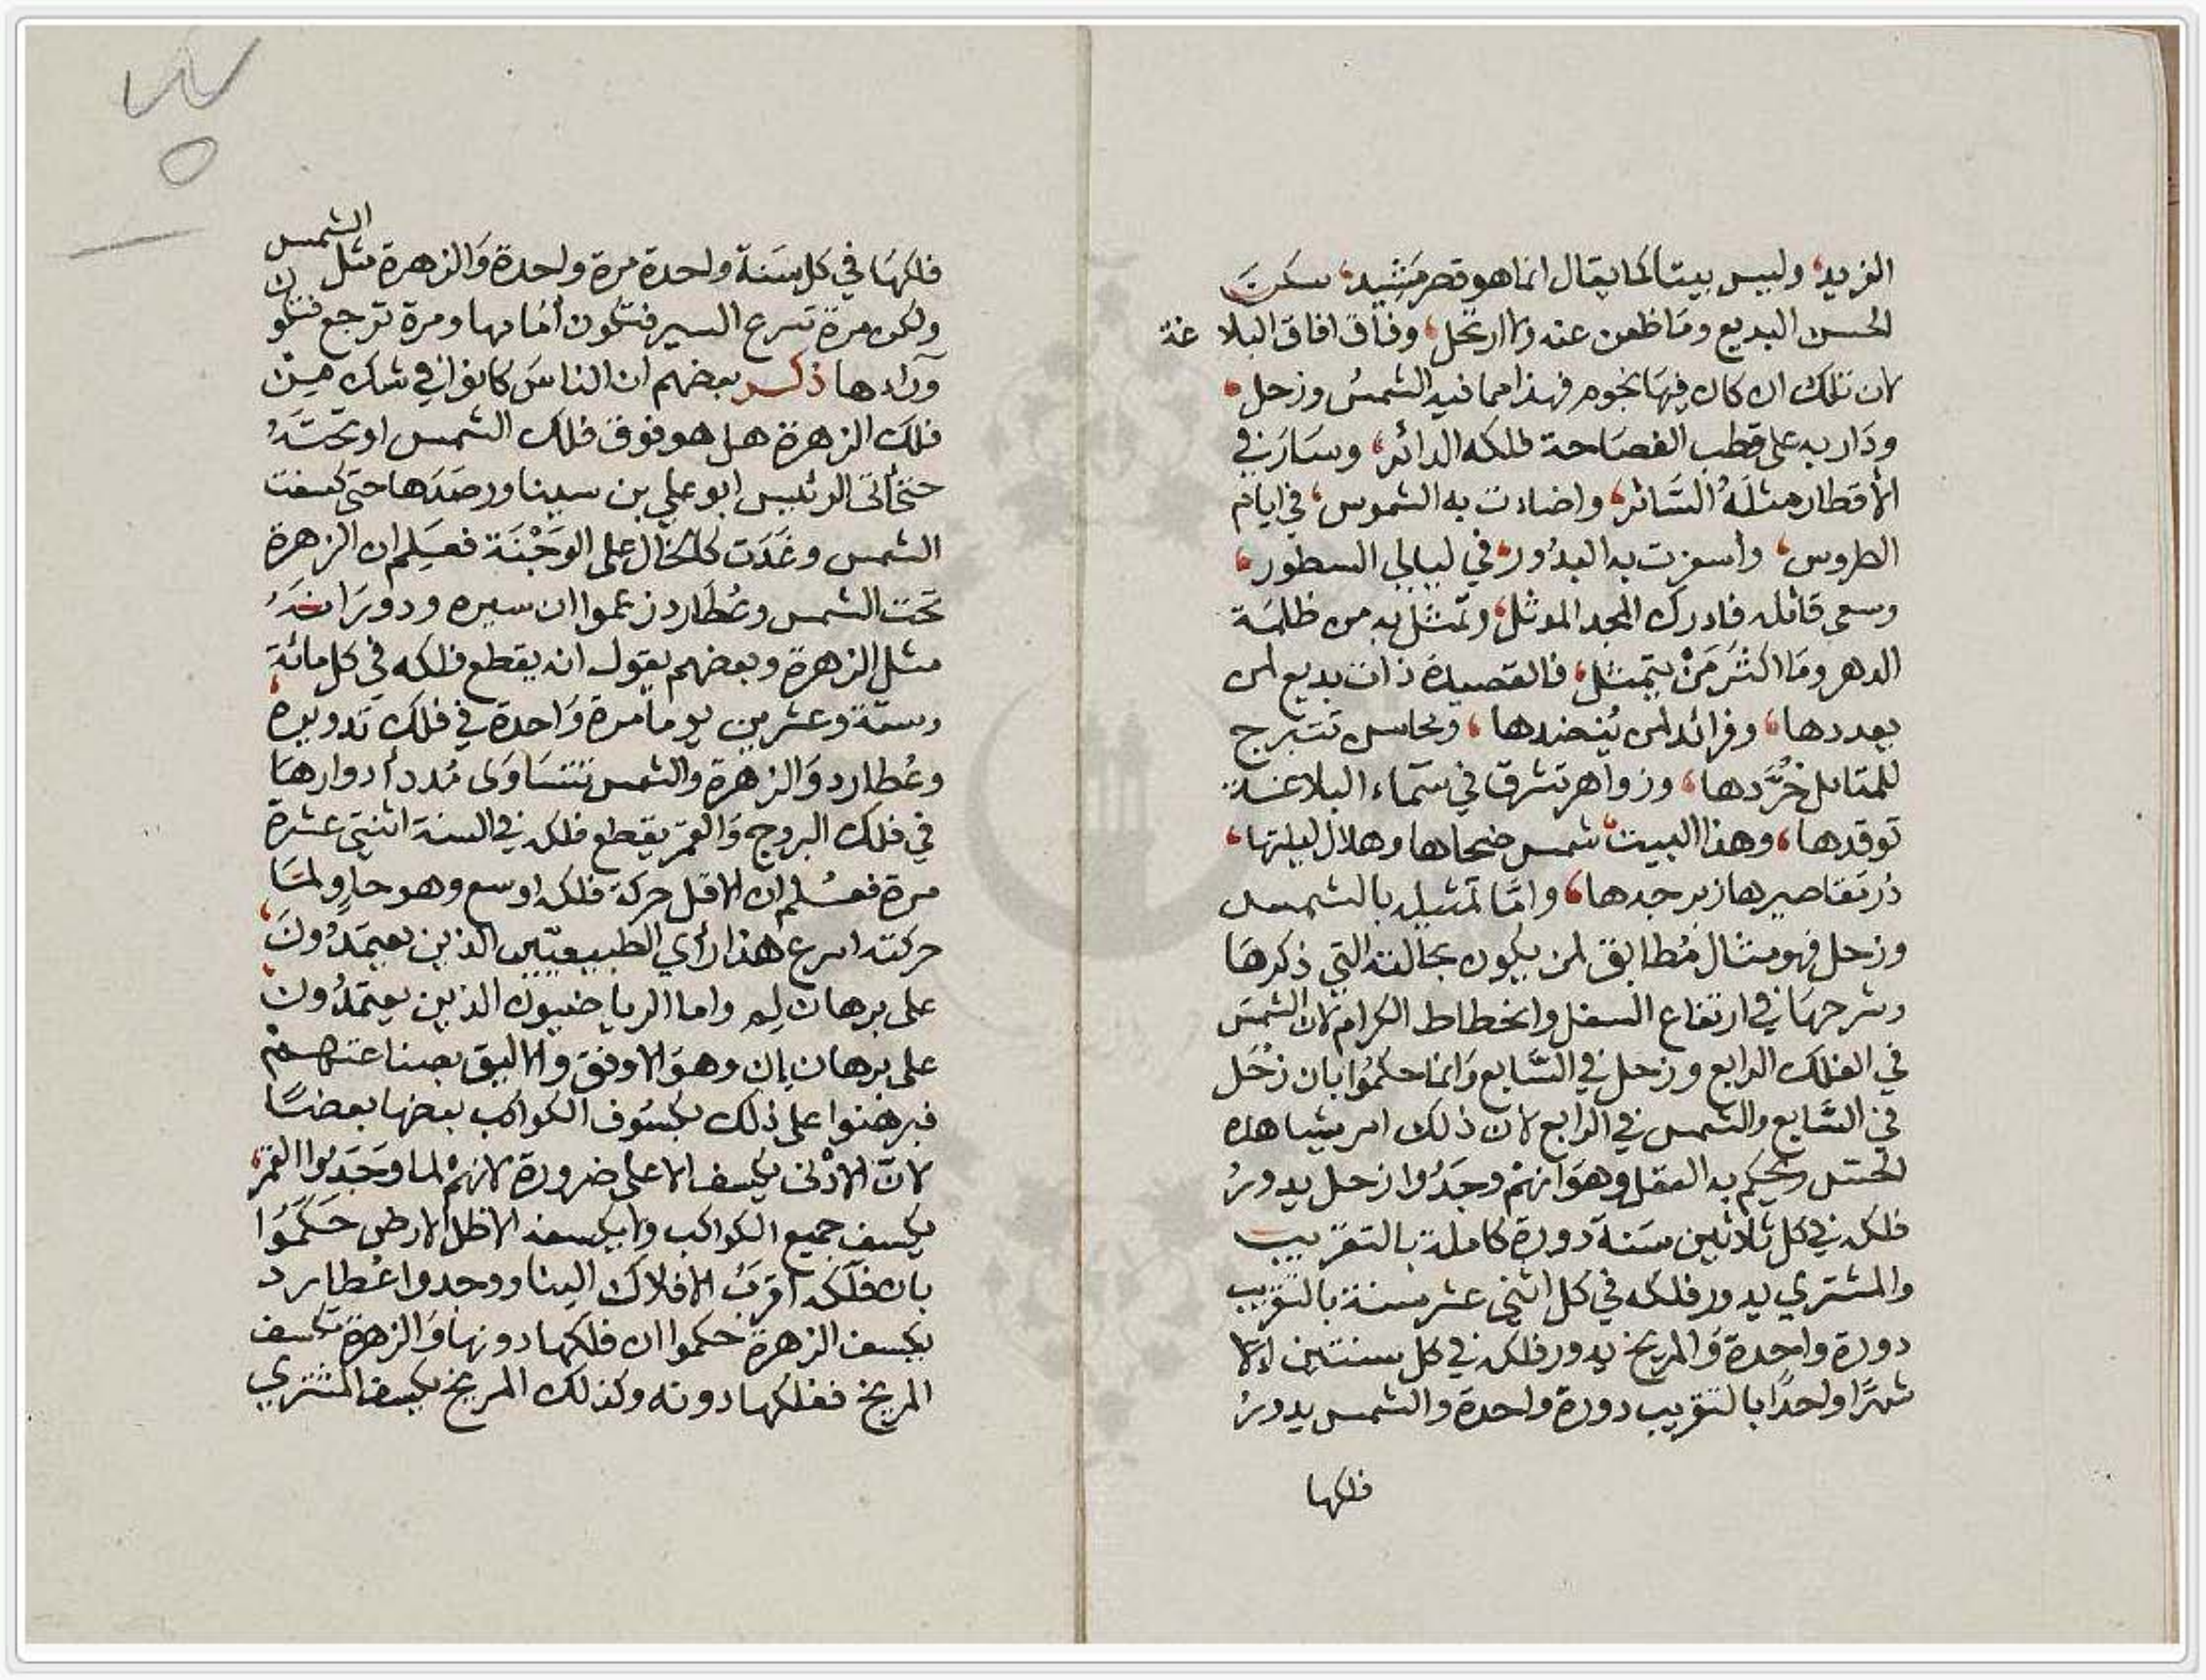 الفريد، وليس بيتا كما يقال انما هو قصر مَشِيد، سكنَتَ
الحسن البديع ومَا ظعن عنه وَلا ارتحل، وفاق افاق البلاغة
لان تلك ان كان فِيهَا نجوم فهذا مما فيه الشمسُ وزحل،
ودَار به على قطب الفصَاحة فلكه الدائر، وسَارَ في
الأقطار مثلَهُ السَّائر، واضاءت به الشموس، في ايام
الطروس، وأسفرت به البدُور، في ليالي السطور،
وسعى قائله فادرك المجد الموثل، وتمثل به من ظلمَة
الدهر ومَا اكثَر مَنْ يتمثل، فالقصيدة ذات بديع لمن
يعددها، وفرائد لمن يُنضدها، ومحاسن تَتَبرج
للمتامل خُرَّدها، وزواهر تشرق في سَماء البلاغة
توقدها، وهذا البيت، شمس ضحاها وهلال ليلتها،
دُر تقاصيرها زبرجدها، وامَّا تمثيله بالشمس
وزحل فهو مثال مُطابق لمن يكون بحالته التي ذكرهَا
وشرحهَا في ارتفاع السفل وانحطاط الكرام لان الشمسَ
في الفلك الرابع وزحل في السَّابع وَانما حكمُوا بان زُحَل
في السَّابع والشمس في الرابع لان ذلك امر يشاهده
الحسّ ويحكم به العقل وهوَ انهم وجَدُوا زحل يدورُ
فلكه في كل ثلاثين سَنة دورة كاملة بالتقريب
والمشتري يدور فلكه في كل اثني عشر سنة بالتقريب
دورة واحدة وَالمريخ يدور فلكه في كل سنتين إلاّ
شهرًا واحدًا بالتقريب دورة واحدة والشمس يدورُ
فلكها
فلكهَا في كل سَنة واحدة مرة واحدة وَالزهرة مثل الشمس
ولكن مرة تسرع السير فتكون أمَامها ومرة ترجع فتكون
وَراءها ذكر بعضهم ان الناسَ كانوا في شك مِنْ
فلك الزهرة هل هو فوق فلك الشمس او تحتَهُ
حتى أتى الرئيس ابو علي بن سينا ورصَدَها حتى كسفت
الشمس وغَدَت كالخال على الوَجْنَة فعَلِم ان الزهرة
تحت الشمس وعُطَارد زعموا ان سيره ودورَانهُ
مثل الزهرة وبعضهم يقول انه يقطع فلكه في كل مائة
وستّة وعشرين يومًا مرة وَاحدة في فلك تدويره
وعُطارد وَالزهرة والشمس تتسَاوَى مُدد أدوارهَا
في فلك البروج وَالقمر يقطع فلكه في السنة اثنتي عشرة
مرة فعُلم ان الاقل حركة فلكه اوسع وهو حاوٍ لمَا
حركته اسرع هذا رأي الطبيعيّين الذين يعتمدُونَ
على برهان لِم واما الرياضيون الذين يعتمدُون
على برهان إن وهوَ الاوفق والاليق بصناعتهمْ
فبرهنوا على ذلك بكسُوف الكواكب بعضها بعضًا
لانّ الادْنى يكسف الاعلى ضرورة لانهمْ لما وَجَدوا القمر،
يكسف جميع الكواكب ولا يكسفه الا ظل الارض حَكمُوا
بان فلكه اقربُ الافلاك الينا ووجدوا عُطارد
يكسف الزهرة حكموا ان فلكها دونها وَالزهرة تكسف
المريخ ففلكها دونه وكذلك المريخ يكسف المشتري